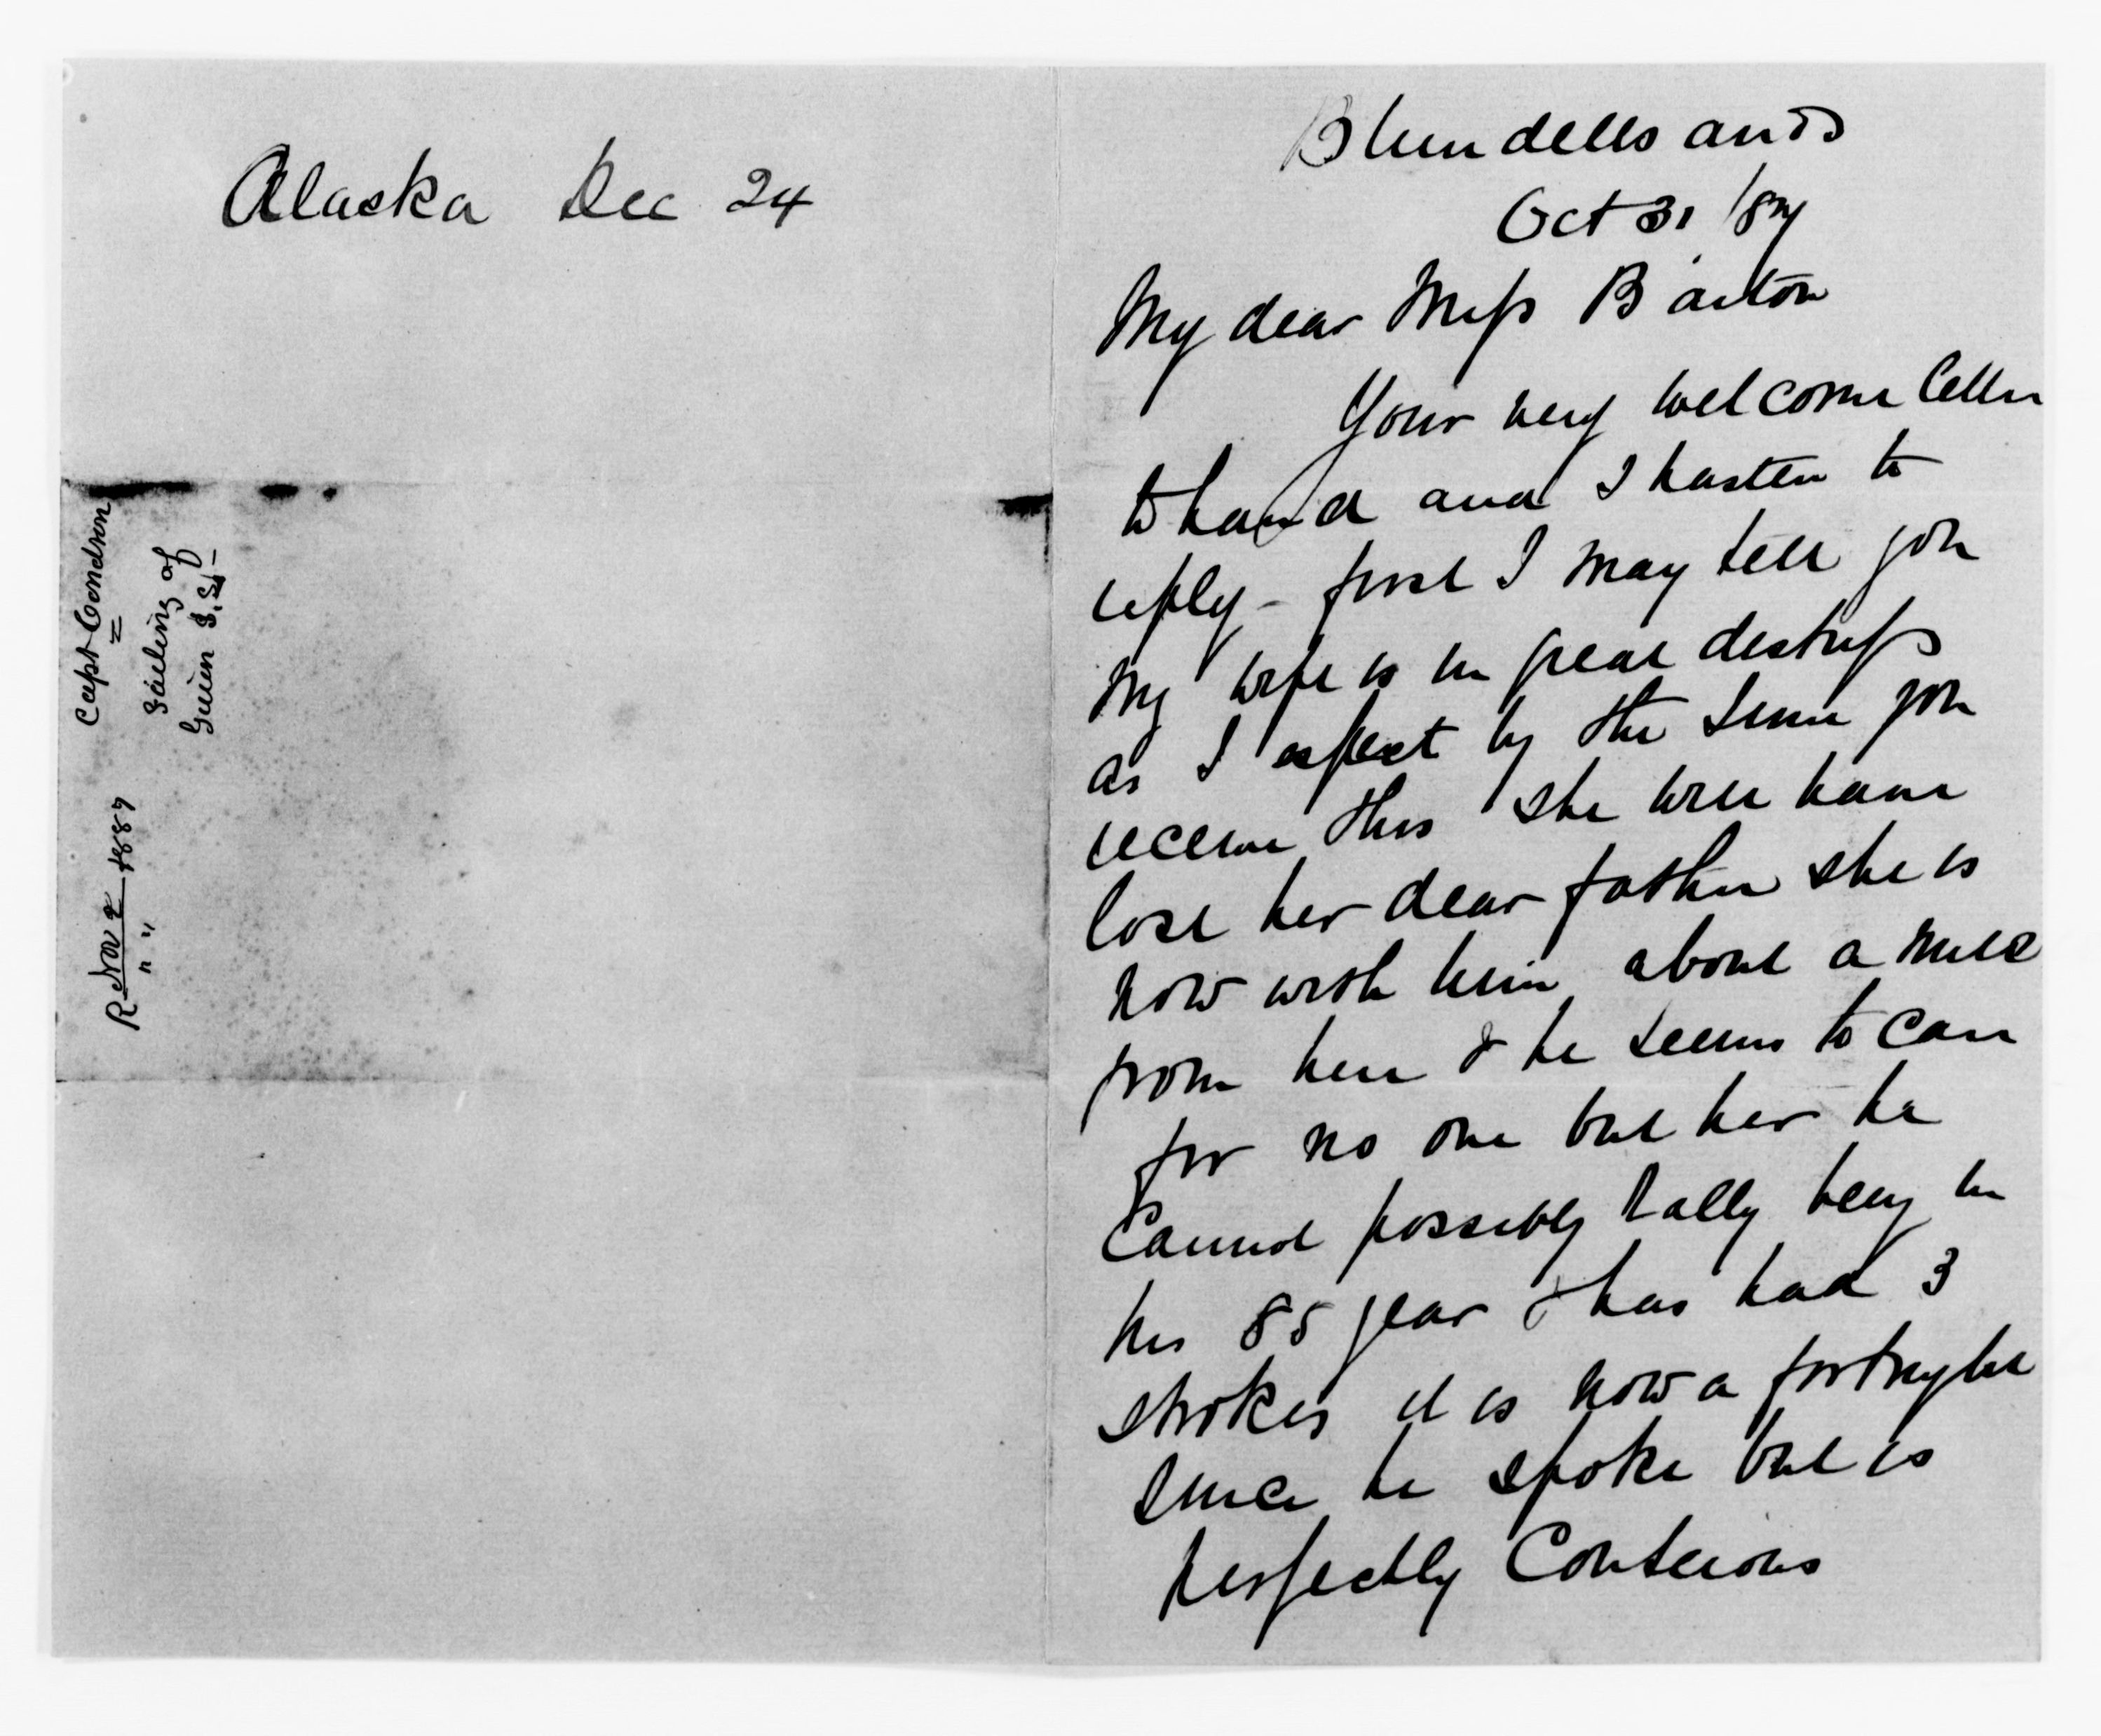 Alaska Dec 24
Capt Condron
Sailing of
Guion S.S.
R Nov 2 1887
" "
Blundellsands
Oct 31 /87
My dear Miss Barton
Your very welcome letter
to hand and I hasten to
reply - first I may tell you
my wife is in great distress
as I expect by the time you
receive this she will have
lost her dear father she is
now with him about a mile
from here & he seems to care
for no one but her he
cannot possibly rally being in
his 85 year & has had 3
strokes it is now a fortnight
since he spoke but is
perfectly Conscious